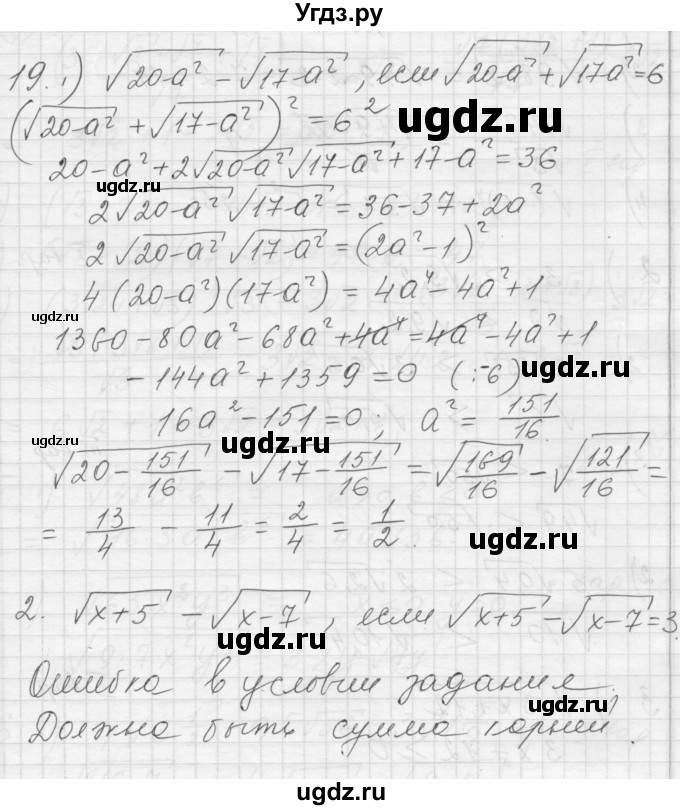 Угдз.ру
19. 1) √(20-a²) - √(17-a²), если √(20-a²) + √(17a²) = 6
(√(20-a²) + √(17-a²))² = 6²
ugdz.ru
20-a² + 2√(20-a²) √(17-a²) + 17-a² = 36
ugdz.ru
2√(20-a²) √(17-a²) = 36-37+2a²
ugdz.ru
2√(20-a²) √(17-a²) = (2a²-1)²
4(20-a²)(17-a²) = 4a⁴-4a²+1
ugdz.ru
1360-80a²-68a²+4a⁴=4a⁴-4a²+1
-144a²+1359=0 (:-6)
ugdz.ru
16a²-151=0; a² = 151/16.
ugdz.ru ugdz.ru
√(20 - 151/16) - √(17 - 151/16) = √(169/16) - √(121/16) =
= 13/4 - 11/4 = 2/4 = 1/2.
ugdz.ru
2. √(x+5) - √(x-7), если √(x+5) - √(x-7) = 3.
ugdz.ru
Ошибка в условии задания.
ugdz.ru
Должна быть сумма корней.
ugdz.ru